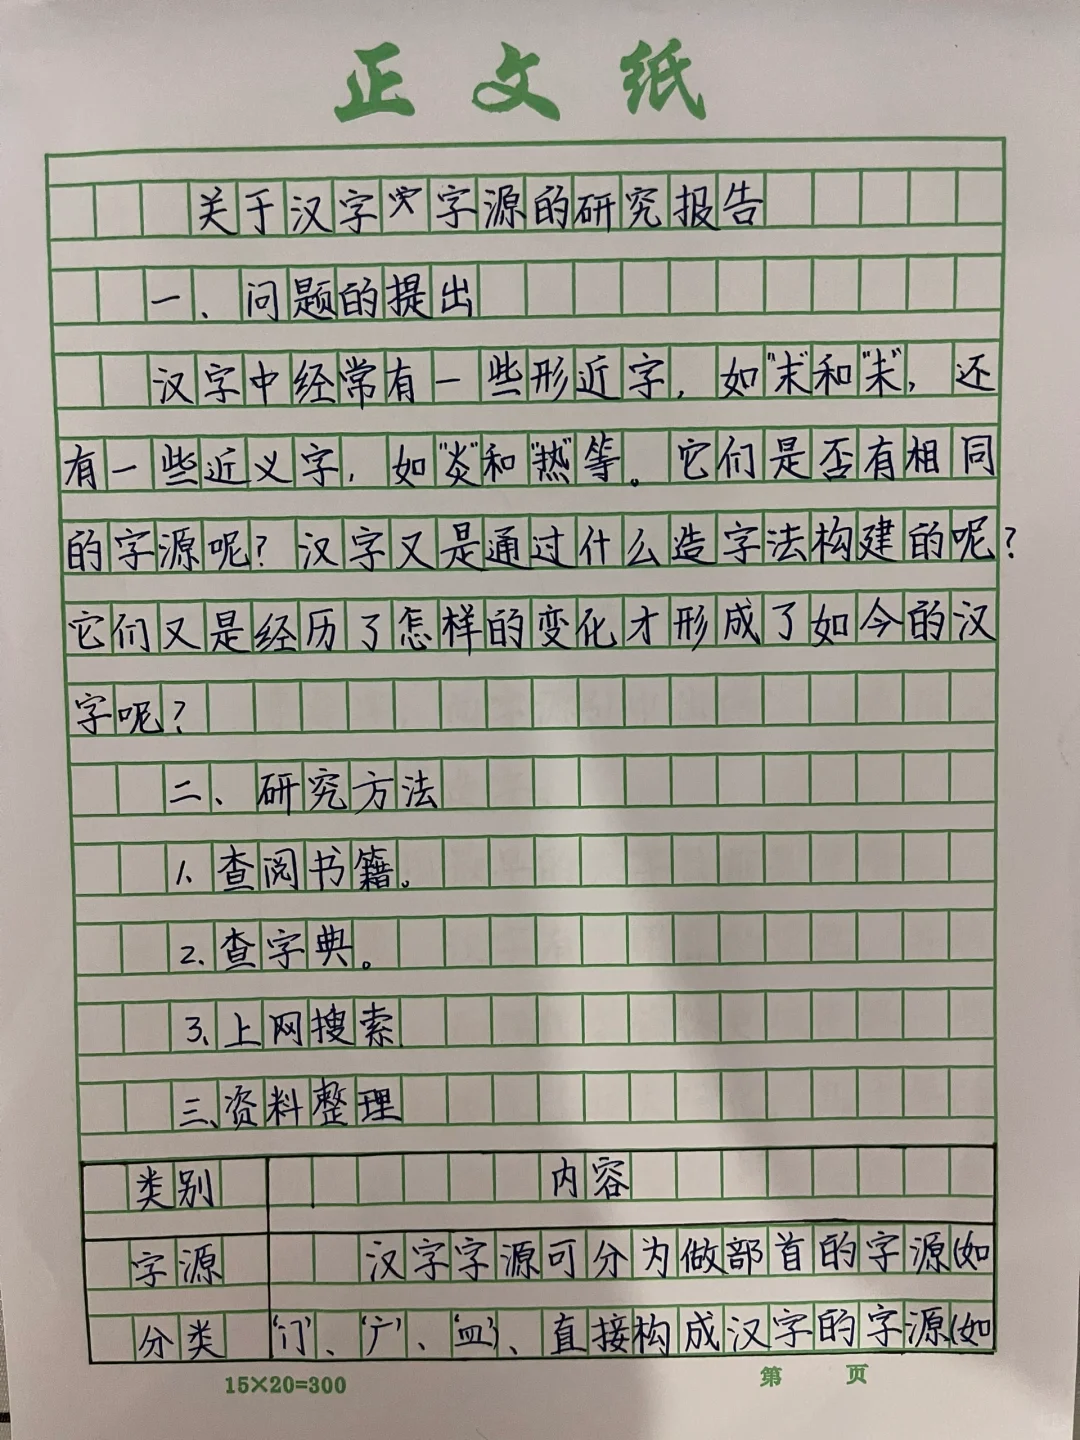 正文纸
关于汉字字源的研究报告
一、问题的提出
汉字中经常有一些形近字，如"末"和"未"，还
有一些近义字，如"炎"和"热"等。它们是否有相同
的字源呢？汉字又是通过什么造字法构建的呢？
它们又是经历了怎样的变化才形成了如今的汉
字呢？
二、研究方法
1.查阅书籍。
2.查字典。
3.上网搜索
三、资料整理
类别 内容
字源 汉字字源可分为做部首的字源(如
分类 '门'、'疒'、'皿')、直接构成汉字的字源(如
15×20=300 第 页